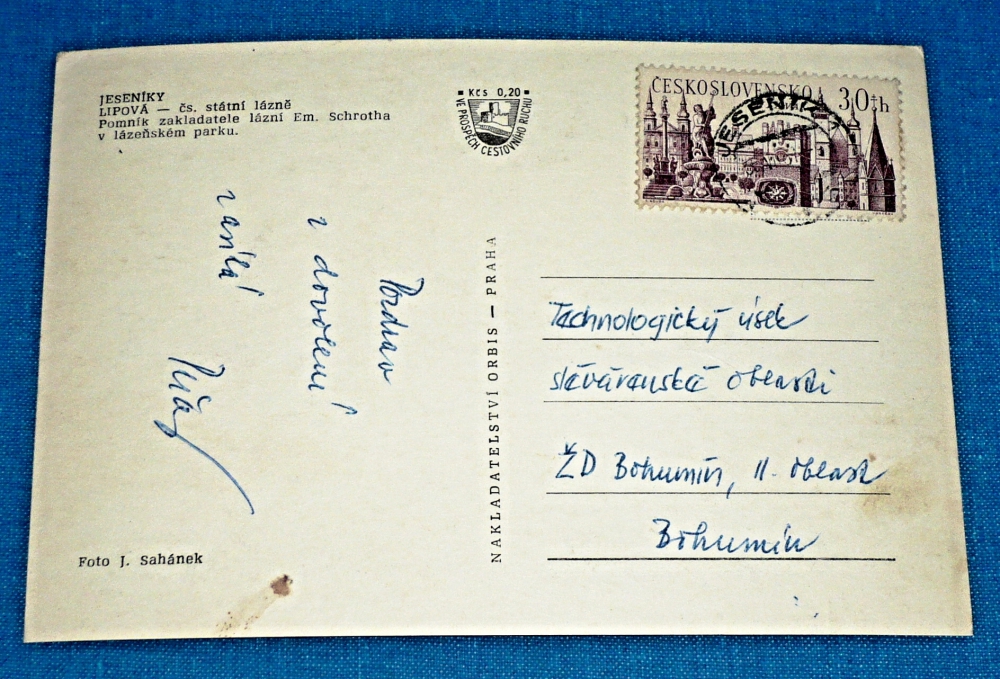 JESENÍKY
LIPOVÁ — čs. státní lázně
Pomník zakladatele lázní Em. Schrotha
v lázeňském parku.
Kčs 0,20
VE PROSPĚCH CESTOVNÍHO RUCHU
ČESKOSLOVENSKO
30h
JESENÍK
Pozdrav
z dovolení
zasílá
Foto J. Sahánek
NAKLADATELSTVÍ ORBIS — PRAHA
Technologický úsek
slévárenské oblasti
ŽD Bohumín, II. oblast
Bohumín